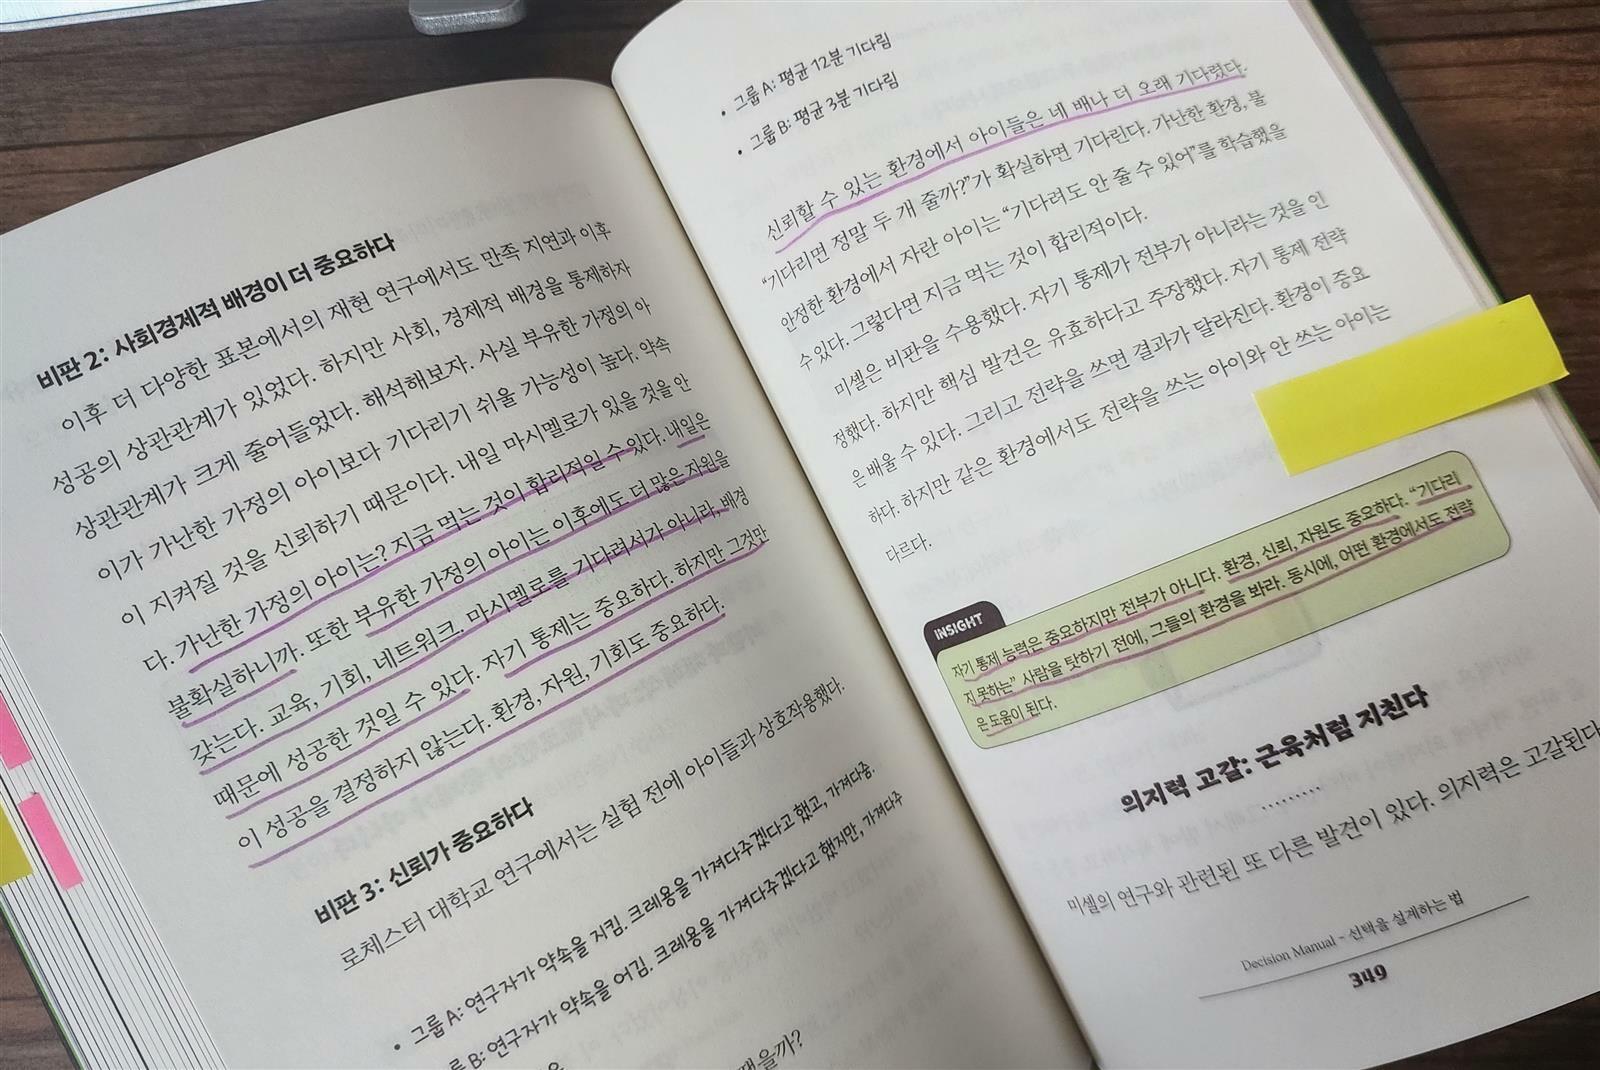 비판 2: 사회경제적 배경이 더 중요하다
이후 더 다양한 표본에서의 재현 연구에서도 만족 지연과 이후
성공의 상관관계가 있었다. 하지만 사회, 경제적 배경을 통제하자
상관관계가 크게 줄어들었다. 해석해보자. 사실 부유한 가정의 아
이가 가난한 가정의 아이보다 기다리기 쉬울 가능성이 높다. 약속
이 지켜질 것을 신뢰하기 때문이다. 내일 마시멜로가 있을 것을 안
다. 가난한 가정의 아이는? 지금 먹는 것이 합리적일 수 있다. 내일은
불확실하니까. 또한 부유한 가정의 아이는 이후에도 더 많은 자원을
갖는다. 교육, 기회, 네트워크. 마시멜로를 기다려서가 아니라, 배경
때문에 성공한 것일 수 있다. 자기 통제는 중요하다. 하지만 그것만
이 성공을 결정하지 않는다. 환경, 자원, 기회도 중요하다.
비판 3: 신뢰가 중요하다
로체스터 대학교 연구에서는 실험 전에 아이들과 상호작용했다.
• 그룹 A: 연구자가 약속을 지킴. 크레용을 가져다주겠다고 했고, 가져다줌.
룹 B: 연구자가 약속을 어김. 크레용을 가져다주겠다고 했지만, 가져다주
땠을까?
• 그룹 A: 평균 12분 기다림
• 그룹 B: 평균 3분 기다림
신뢰할 수 있는 환경에서 아이들은 네 배나 더 오래 기다렸다.
“기다리면 정말 두 개 줄까?”가 확실하면 기다린다. 가난한 환경, 불
안정한 환경에서 자란 아이는 “기다려도 안 줄 수 있어”를 학습했을
수 있다. 그렇다면 지금 먹는 것이 합리적이다.
미셸은 비판을 수용했다. 자기 통제가 전부가 아니라는 것을 인
정했다. 하지만 핵심 발견은 유효하다고 주장했다. 자기 통제 전략
은 배울 수 있다. 그리고 전략을 쓰면 결과가 달라진다. 환경이 중요
하다. 하지만 같은 환경에서도 전략을 쓰는 아이와 안 쓰는 아이는
다르다.
INSIGHT
자기 통제 능력은 중요하지만 전부가 아니다. 환경, 신뢰, 자원도 중요하다. “기다리
지 못하는” 사람을 탓하기 전에, 그들의 환경을 봐라. 동시에, 어떤 환경에서도 전략
은 도움이 된다.
의지력 고갈: 근육처럼 지친다
미셸의 연구와 관련된 또 다른 발견이 있다. 의지력은 고갈된다
Decision Manual - 선택을 설계하는 법
349